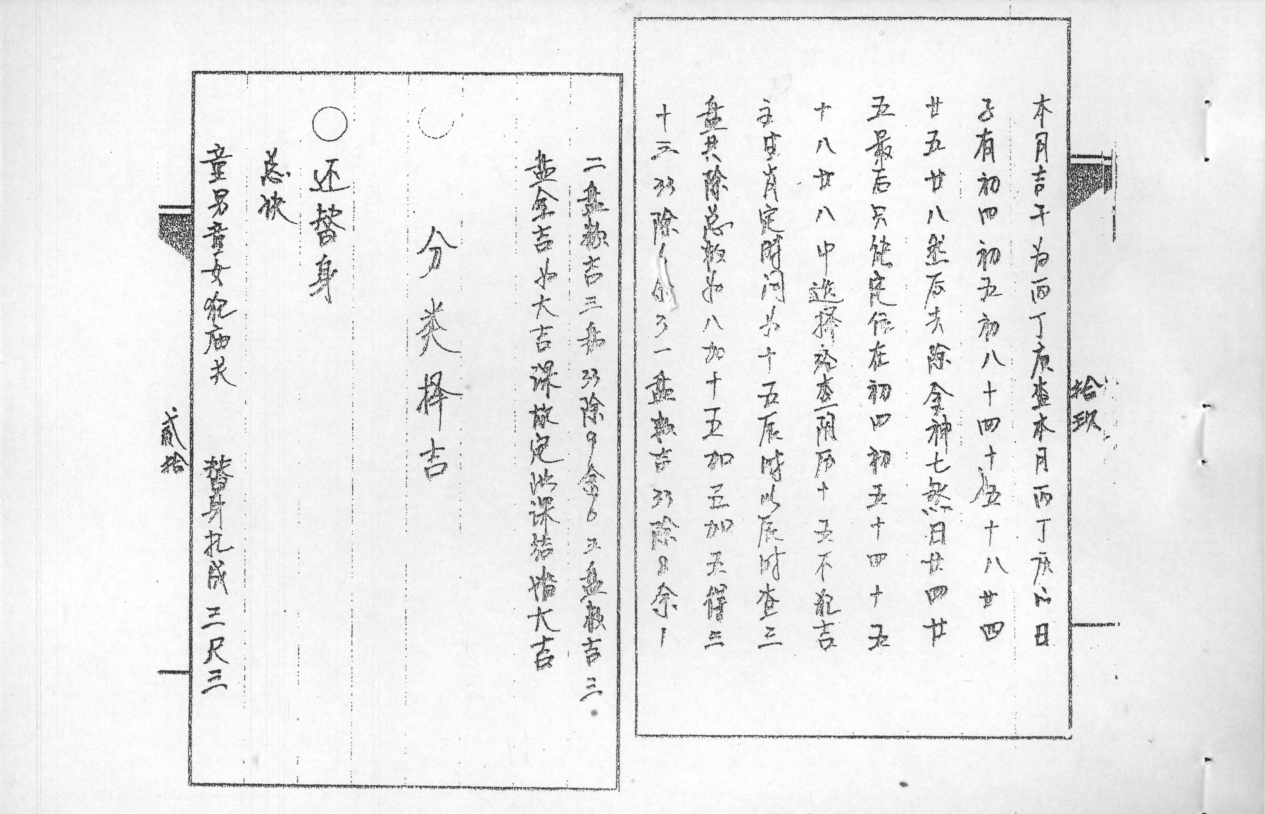 本月吉干为丙丁庚查本月丙丁庚的日
子有初四初五初八十四十五十八廿四
廿五廿八然后去除金神七煞日廿四廿
五最后只能定位在初四初五十四十五
十八廿八中选择 查阴历十五不犯吉
主生肖定时间为十五辰时以辰时查三
盘共除总数为八加十五加五加五得三
十三 33除 余3一盘数吉33除8余1
拾玖
二盘数吉三 33除9余6三盘数吉三
盘全吉为大吉课故定此课结婚大吉
分类择吉
○还替身
总诀
童男童女犯庙关 替身扎成三尺三
贰拾